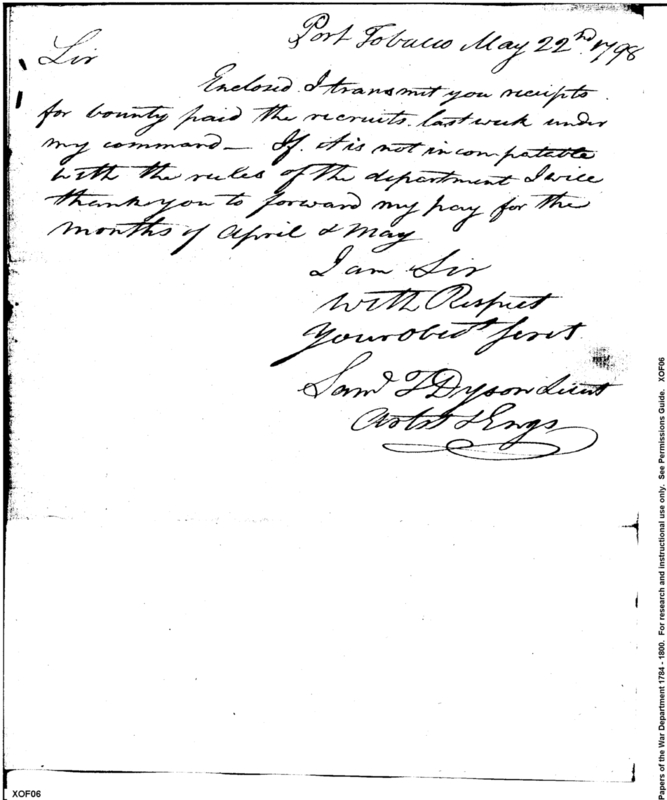 Port Tobacco May 22nd 1798
Sir
Enclosed I transmit you receipts
for bounty paid the recruits last week under
my command - If it is not incompatable
with the rules of the department I will
thank you to forward my pay for the
months of April & May
I am Sir
with Respect
Your obedt Servt
Saml T Dyson Lieut
Artsts & Engs
Papers of the War Department 1784 - 1800. For research and instructional use only. See Permissions Guide. XOF06
XOF06